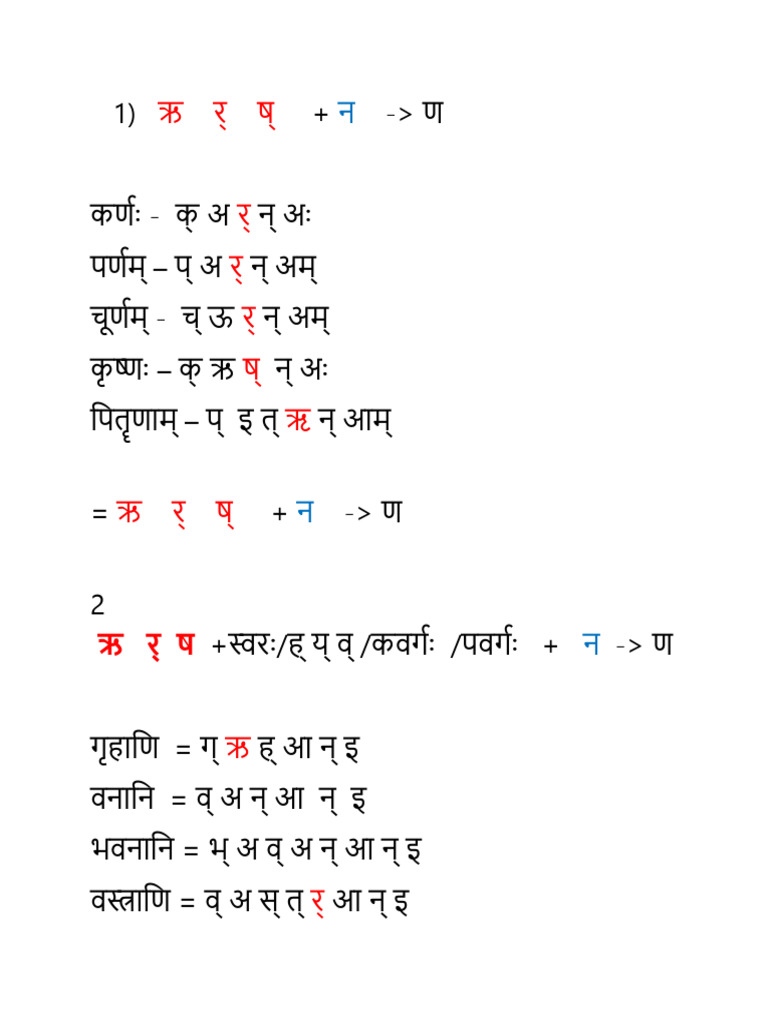 1) ऋ र् ष् + न -> ण
कर्णः - क् अ र् न् अः
पर्णम् – प् अ र् न् अम्
चूर्णम् - च् ऊ र् न् अम्
कृष्णः – क् ऋ ष् न् अः
पितॄणाम् – प् इ त् ऋ न् आम्
= ऋ र् ष् + न -> ण
2
ऋ र् ष +स्वरः/ह् य् व् /कवर्गः /पवर्गः + न -> ण
गृहाणि = ग् ऋ ह् आ न् इ
वनानि = व् अ न् आ न् इ
भवनानि = भ् अ व् अ न् आ न् इ
वस्त्राणि = व् अ स् त् र् आ न् इ